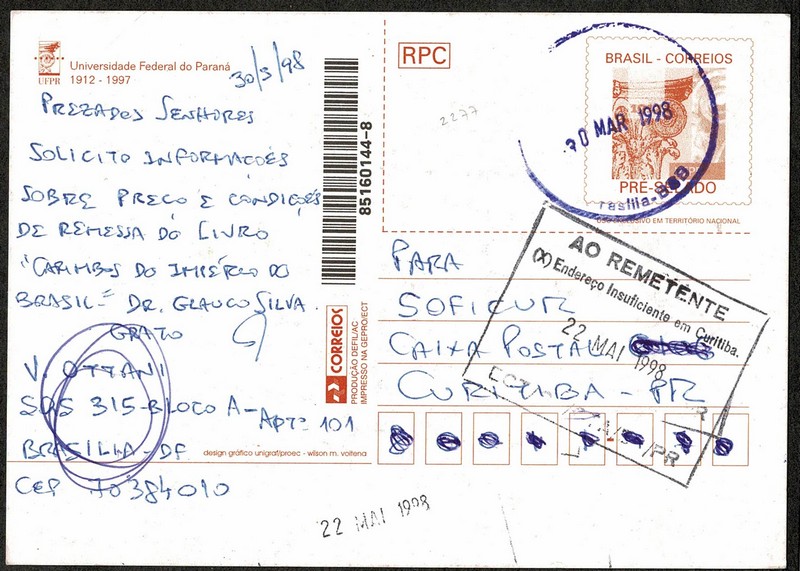 Universidade Federal do Paraná
1912 - 1997
UFPR
30/3/98
PREZADOS SENHORES
SOLICITO INFORMAÇÕES
SOBRE PREÇO E CONDIÇÕES
DE REMESSA DO LIVRO
"CARIMBOS DO IMPÉRIO DO
BRASIL" DR. GLAUCO SILVA.
GRATO
V. OTTANI
SQS 315-BLOCO A-APTº 101
BRASÍLIA-DF
CEP 70384010
design gráfico unigraf/proec - wilson m. voltena
85160144-8
CORREIOS
PRODUÇÃO DEFIL/AC
IMPRESSO NA GEPRO/ECT
RPC
2277
BRASIL - CORREIOS
30 MAR 1998
PRÉ-SELADO
rasília-BSB
USO EXCLUSIVO EM TERRITÓRIO NACIONAL
PARA
SOFICUR
CAIXA POSTAL
CURITIBA - PR
AO REMETENTE
(X) Endereço Insuficiente em Curitiba.
22 MAI 1998
/PR
22 MAI 1998